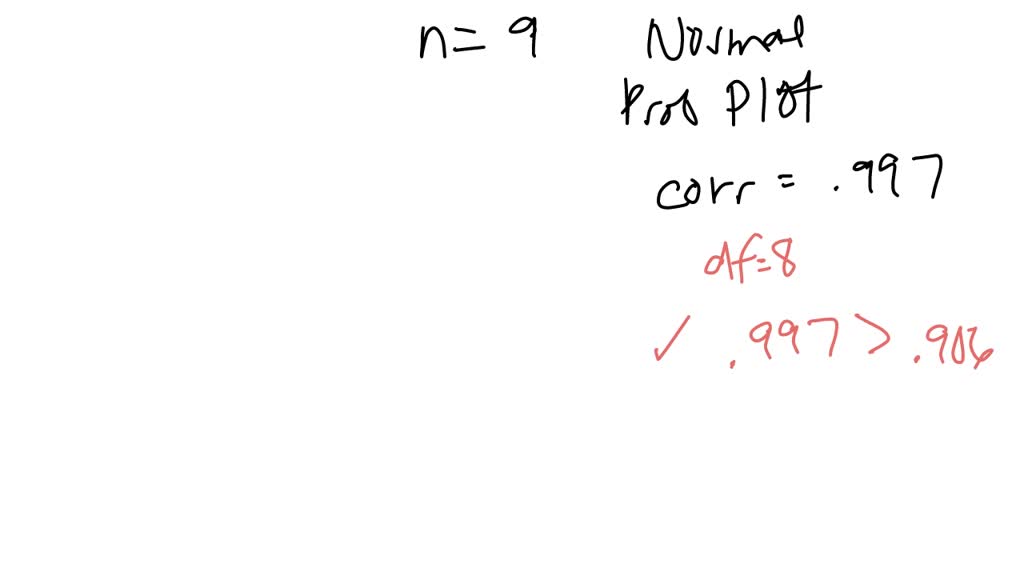 n = 9 Normal
Prob Plot
corr = .997
df=8
✓ .997 > .906